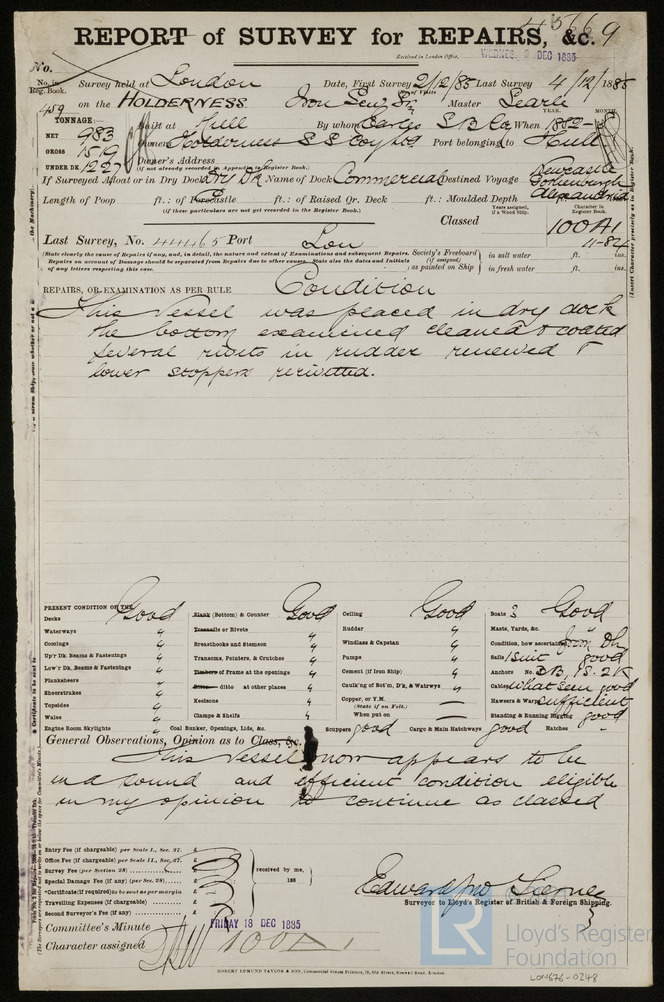 45669
REPORT OF SURVEY for REPAIRS, &c.
Received in London Office, WEDNES. 9 DEC 1885
No.
No. in Reg. Book. Survey held at London Date, First Survey 2/12/85 Last Survey 4/12/1885
459 on the HOLDERNESS Iron Screw Str Master Searle
TONNAGE:— Built at Hull By whom Earles S B Co When 1882
YEAR. MONTH.
NET 983 Owners Holderness S S Coy Ltd Port belonging to Hull
GROSS 1519 Owner's Address
UNDER DK 1227 (if not already recorded in Appendix to Register Book.)
If Surveyed Afloat or in Dry Dock Dry Dk Name of Dock Commercial Destined Voyage Newcastle Gothenburgh Alexandria
Length of Poop ft.: of Forecastle ft.: of Raised Qr. Deck ft.: Moulded Depth
(if these particulars are not yet recorded in the Register Book.)
Years assigned, if a Wood Ship. Character in Register Book.
Classed 100A1
11-84
Last Survey, No. 44465 Port Lon
(State clearly the cause of Repairs if any, and, in detail, the nature and extent of Examinations and subsequent Repairs.
Repairs on account of Damage should be separated from Repairs due to other causes. State also the dates and Initials
of any letters respecting this case.
Society's Freeboard (if assigned) as painted on Ship
in salt water ft. ins.
in fresh water ft. ins.
REPAIRS, OR EXAMINATION AS PER RULE Condition
This Vessel was placed in dry dock
the bottom examined cleaned & coated
several rivets in rudder renewed &
lower stoppers rerivetted.
PRESENT CONDITION OF THE
Decks Good
Waterways "
Comings "
Up'r Dk. Beams & Fastenings "
Low'r Dk. Beams & Fastenings "
Planksheers "
Sheerstrakes "
Topsides "
Wales "
Engine Room Skylights "
Plank (Bottom) & Counter Good
Treenails or Rivets "
Breasthooks and Stemson "
Transoms, Pointers, & Crutches "
Timbers of Frame at the openings "
Ditto ditto at other places "
Keelsons "
Clamps & Shelfs "
Coal Bunker, Openings, Lids, &c.
Ceiling Good
Rudder "
Windlass & Capstan "
Pumps "
Cement (if Iron Ship) "
Caulk'ng of Bot'm, D'k, & Watrwys "
Copper, or Y.M. —
(State if on Felt.)
When put on —
Scuppers good Cargo & Main Hatchways good
Boats 3 Good
Masts, Yards, &c. "
Condition, how ascertained from Dk
Sails 1 Suit good
Anchors No. 3B, 1S. 2K
Cables what seen good
Hawsers & Warps sufficient
Standing & Running Rigging good
Hatches "
General Observations, Opinion as to Class, &c.
This Vessel now appears to be
in a sound and efficient condition eligible
in my opinion to continue as classed
Entry Fee (if chargeable) per Scale I., Sec. 27. £
Office Fee (if chargeable) per Scale II., Sec. 27. £
Survey Fee (per Section 28) £
Special Damage Fee (if any) (per Sec. 28) £
*Certificate (if required) to be sent as per margin
Travelling Expenses (if chargeable) £
Second Surveyor's Fee (if any) £
received by me,
188
Edward Jno Tierney
Surveyor to Lloyd's Register of British & Foreign Shipping.
Committee's Minute FRIDAY 18 DEC 1885
Character assigned 100A1
ROBERT EDMUND TAYLOR & SON, Commercial Steam Printers, 19, Old Street, Goswell Road, London.
LR Lloyd's Register
Foundation
LON676-0248